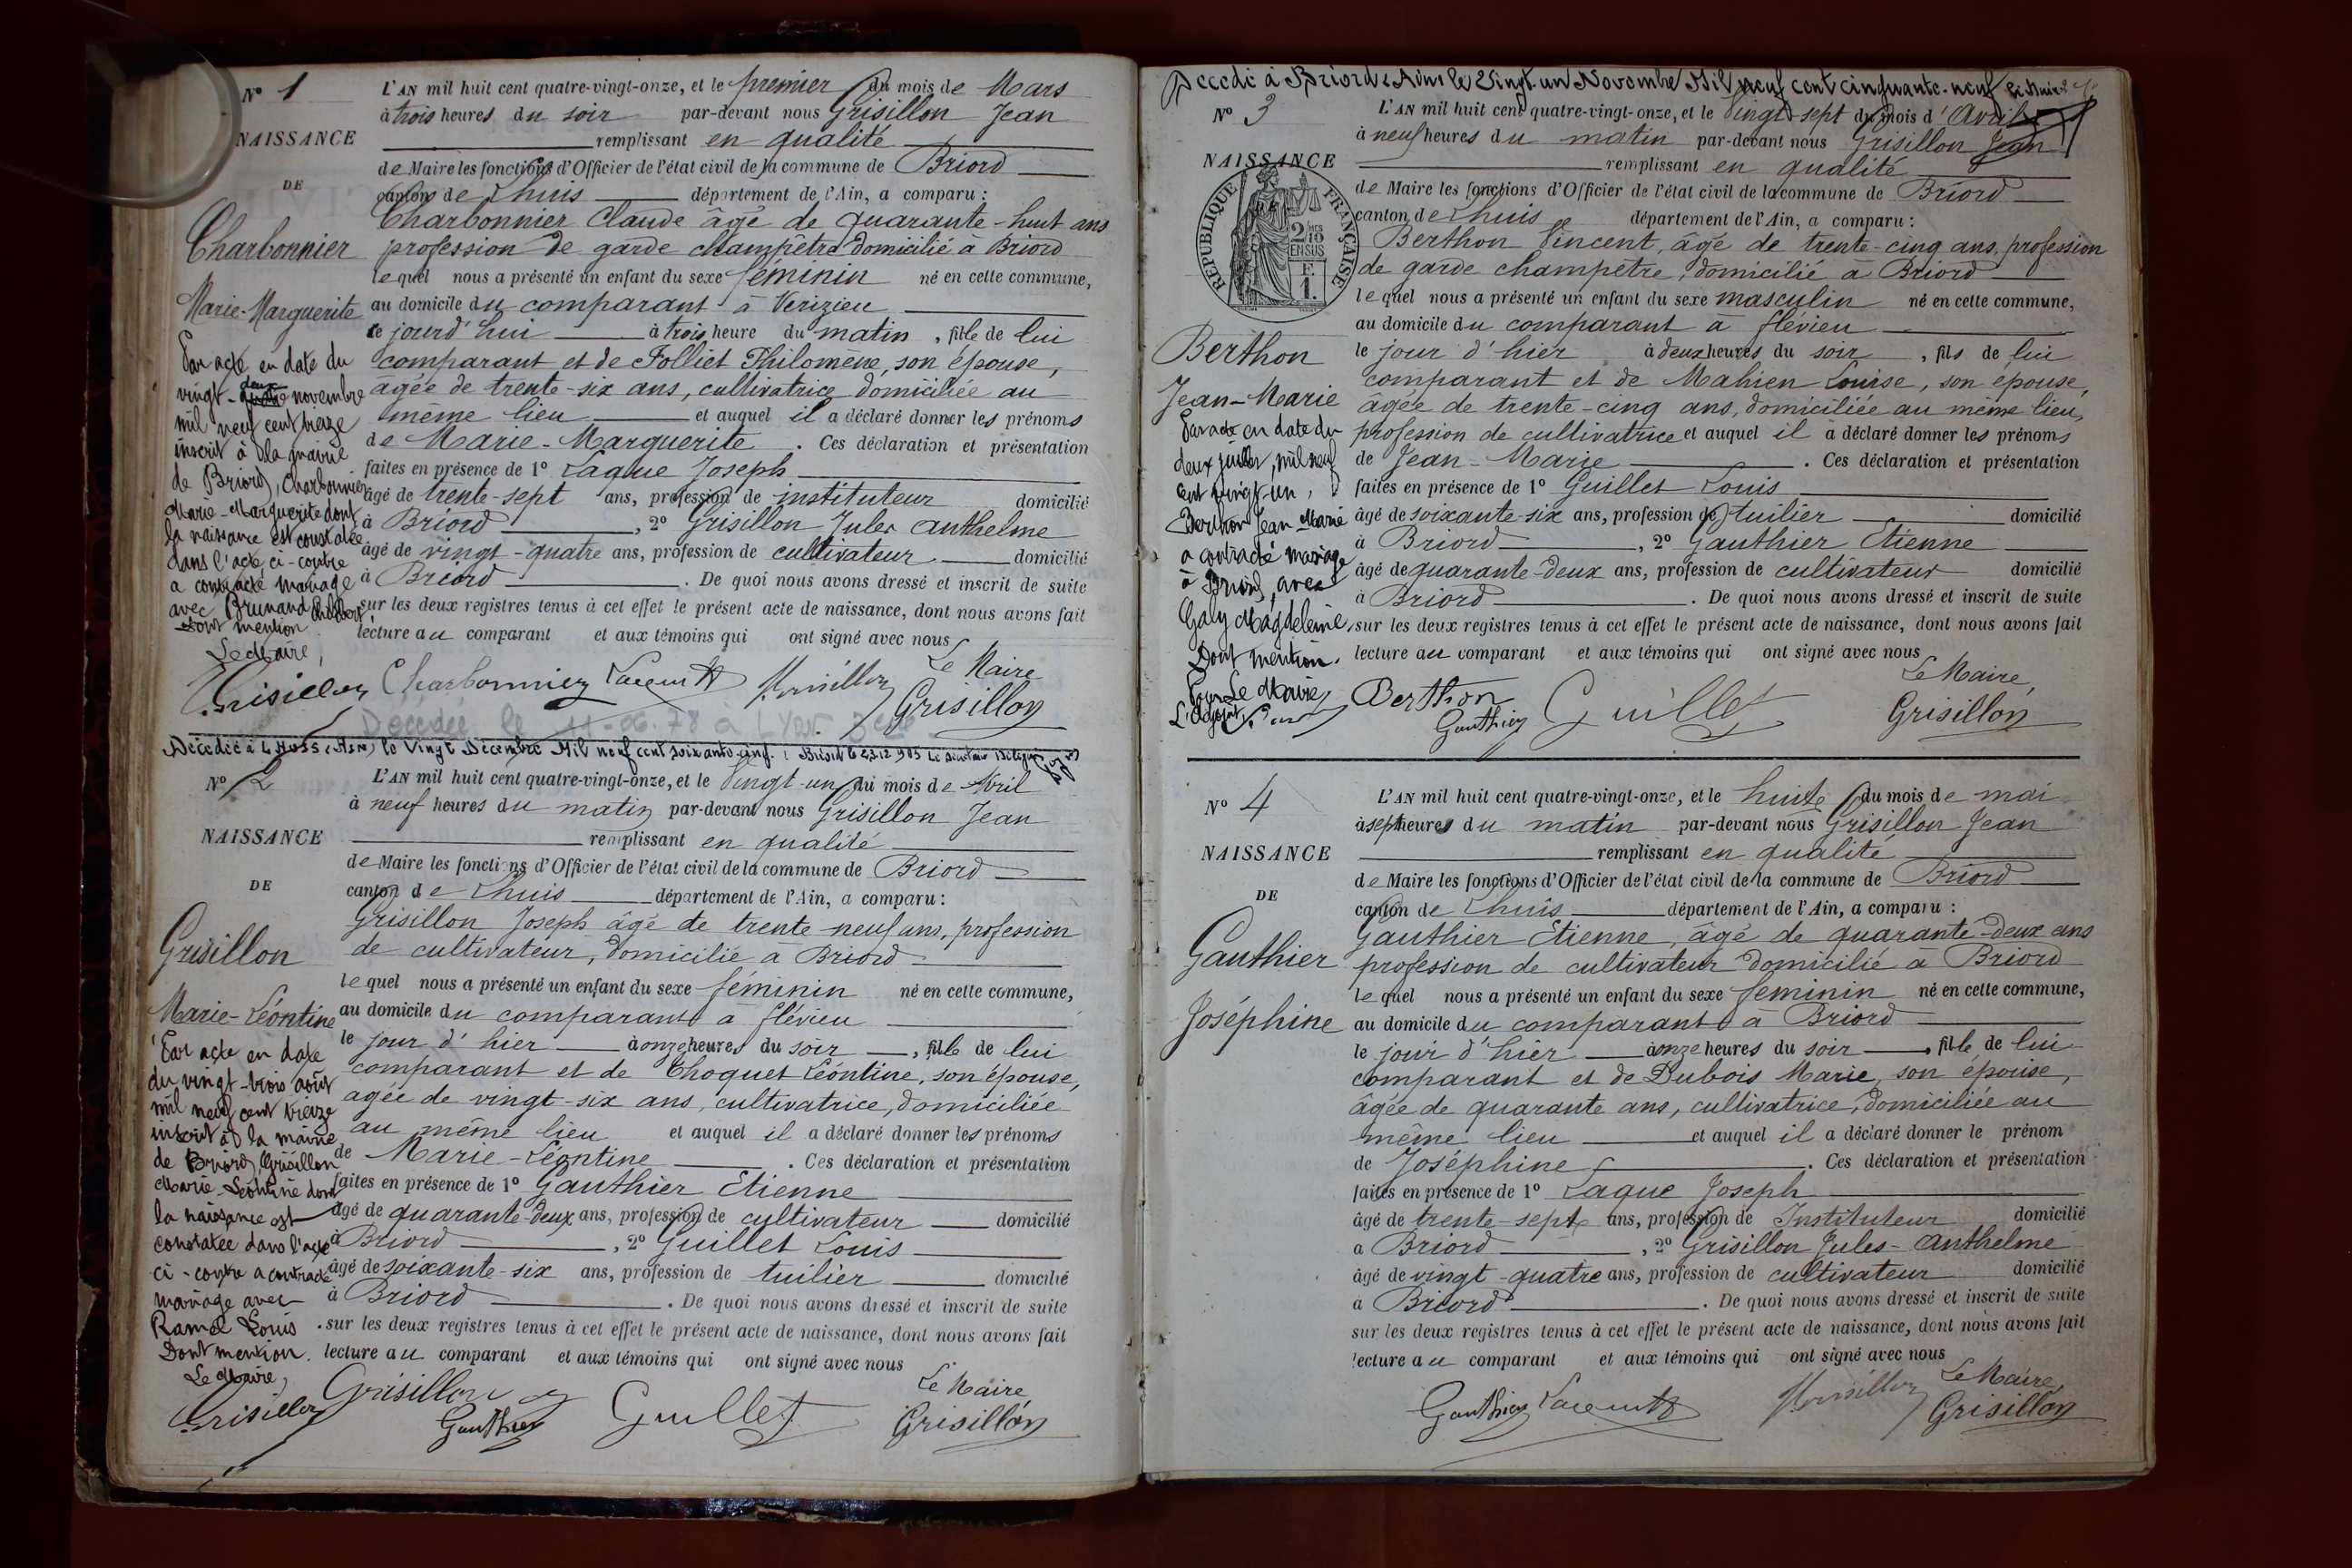 N° 1
NAISSANCE
DE
Charbonnier
Marie-Marguerite
Par acte en date du
vingt-deux novembre
mil neuf cent treize
inscrit à la mairie
de Briord, Charbonnier
Marie-Marguerite dont
la naissance est constatée
dans l'acte ci-contre
a contracté mariage
avec Brunand
Dont mention
Le Maire,
Grisillon
L'AN mil huit cent quatre-vingt-onze, et le premier du mois de Mars
à trois heures du soir par-devant nous Grisillon Jean
remplissant en qualité
de Maire les fonctions d'Officier de l'état civil de la commune de Briord
canton de Lhuis département de l'Ain, a comparu :
Charbonnier Claude âgé de quarante-huit ans
profession de garde champêtre domicilié à Briord
lequel nous a présenté un enfant du sexe féminin né en cette commune,
au domicile du comparant à Vérizieu
ce jourd'hui à trois heure du matin, fille de lui
comparant et de Folliet Philomène, son épouse,
âgée de trente-six ans, cultivatrice domiciliée au
même lieu et auquel il a déclaré donner les prénoms
de Marie-Marguerite. Ces déclaration et présentation
faites en présence de 1° Laque Joseph
âgé de trente-sept ans, profession de instituteur domicilié
à Briord, 2° Grisillon Jules Anthelme
âgé de vingt-quatre ans, profession de cultivateur domicilié
à Briord. De quoi nous avons dressé et inscrit de suite
sur les deux registres tenus à cet effet le présent acte de naissance, dont nous avons fait
lecture au comparant et aux témoins qui ont signé avec nous
Le Maire
Charbonnier Grisillon
Décédée le 11-06-78 à Lyon
Décédée à (Ain) le Vingt Décembre Mil neuf cent soixante-cinq.
N° 2
NAISSANCE
DE
Grisillon
Marie-Léontine
Par acte en date
du vingt-trois août
mil neuf cent treize
inscrit à la mairie
de Briord, Grisillon
Marie-Léontine dont
la naissance est
constatée dans l'acte
ci-contre a contracté
mariage avec
Ramel Louis
Dont mention.
Le Maire,
Grisillon
L'AN mil huit cent quatre-vingt-onze, et le Vingt-un du mois de Avril
à neuf heures du matin par-devant nous Grisillon Jean
remplissant en qualité
de Maire les fonctions d'Officier de l'état civil de la commune de Briord
canton de Lhuis département de l'Ain, a comparu :
Grisillon Joseph âgé de trente-neuf ans, profession
de cultivateur, domicilié à Briord
lequel nous a présenté un enfant du sexe féminin né en cette commune,
au domicile du comparant à flévieu
le jour d'hier à onze heures du soir, fille de lui
comparant et de Choquet Léontine, son épouse,
agée de vingt-six ans, cultivatrice, domiciliée
au même lieu et auquel il a déclaré donner les prénoms
de Marie-Léontine. Ces déclaration et présentation
faites en présence de 1° Gauthier Etienne
âgé de quarante-deux ans, profession de cultivateur domicilié
à Briord, 2° Guillet Louis
âgé de soixante-six ans, profession de tuilier domicilié
à Briord. De quoi nous avons dressé et inscrit de suite
sur les deux registres tenus à cet effet le présent acte de naissance, dont nous avons fait
lecture au comparant et aux témoins qui ont signé avec nous
Le Maire
Grisillon Gauthier Guillet Grisillon
Décédé à Briord (Ain) le Vingt-un Novembre Mil neuf cent cinquante-neuf Le Maire
N° 3
NAISSANCE
RÉPUBLIQUE FRANÇAISE
2/10 EN SUS
F. 1.
Berthon
Jean-Marie
Par acte en date du
deux juillet, mil neuf
cent vingt-un,
Berthon Jean Marie
a contracté mariage
à Briord, avec
Galy Magdeleine,
Dont mention.
Pour Le Maire,
L'adjoint
L'AN mil huit cent quatre-vingt-onze, et le Vingt-sept du mois d'Avril
à neuf heures du matin par-devant nous Grisillon Jean
remplissant en qualité
de Maire les fonctions d'Officier de l'état civil de la commune de Briord
canton de Lhuis département de l'Ain, a comparu :
Berthon Vincent, âgé de trente-cinq ans, profession
de garde champêtre, domicilié à Briord
lequel nous a présenté un enfant du sexe masculin né en cette commune,
au domicile du comparant à flévieu
le jour d'hier à deux heures du soir, fils de lui
comparant et de Mahien Louise, son épouse,
âgée de trente-cinq ans, domiciliée au même lieu,
profession de cultivatrice et auquel il a déclaré donner les prénoms
de Jean-Marie. Ces déclaration et présentation
faites en présence de 1° Guillet Louis
âgé de soixante-six ans, profession de tuilier domicilié
à Briord, 2° Gauthier Etienne
âgé de quarante-deux ans, profession de cultivateur domicilié
à Briord. De quoi nous avons dressé et inscrit de suite
sur les deux registres tenus à cet effet le présent acte de naissance, dont nous avons fait
lecture au comparant et aux témoins qui ont signé avec nous
Le Maire,
Berthon Gauthier Guillet Grisillon
N° 4
NAISSANCE
DE
Gauthier
Joséphine
L'AN mil huit cent quatre-vingt-onze, et le huite du mois de mai
à sept heures du matin par-devant nous Grisillon Jean
remplissant en qualité
de Maire les fonctions d'Officier de l'état civil de la commune de Briord
canton de Lhuis département de l'Ain, a comparu :
Gauthier Etienne, âgé de quarante-deux ans
profession de cultivateur domicilié à Briord
lequel nous a présenté un enfant du sexe féminin né en cette commune,
au domicile du comparant à Briord
le jour d'hier à onze heures du soir, fille de lui
comparant et de Dubois Marie, son épouse,
âgée de quarante ans, cultivatrice, domiciliée au
même lieu et auquel il a déclaré donner le prénom
de Joséphine. Ces déclaration et présentation
faites en présence de 1° Laque Joseph
âgé de trente-sept ans, profession de Instituteur domicilié
à Briord, 2° Grisillon Jules-Anthelme
âgé de vingt-quatre ans, profession de cultivateur domicilié
à Briord. De quoi nous avons dressé et inscrit de suite
sur les deux registres tenus à cet effet le présent acte de naissance, dont nous avons fait
lecture au comparant et aux témoins qui ont signé avec nous
Le Maire,
Gauthier Grisillon